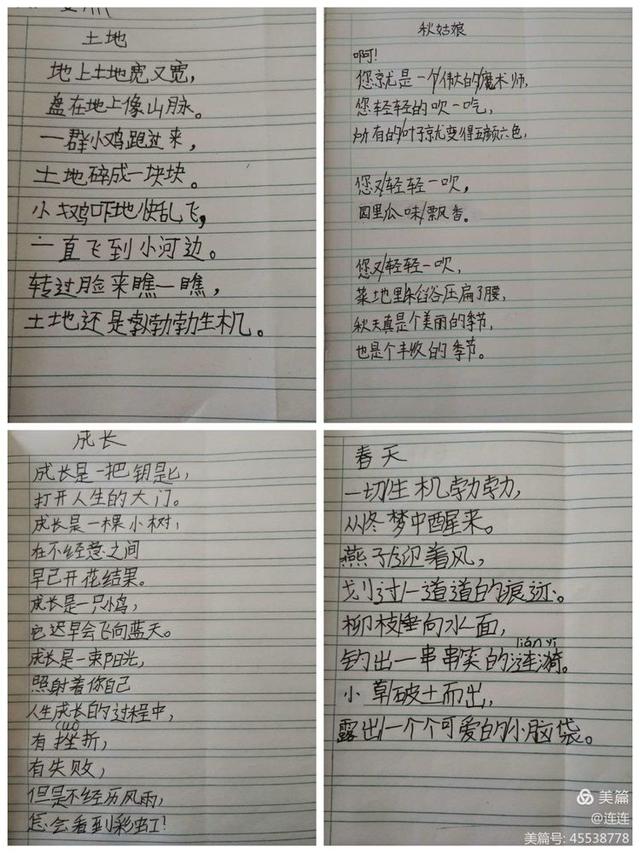 土地
地上土地宽又宽,
盘在地上像山脉。
一群小鸡跑过来,
土地碎成一块块。
小鸡吓地忙乱飞,
一直飞到小河边。
转过脸来瞧一瞧,
土地还是勃勃勃生机。
秋姑娘
啊!
您就是一个伟大的魔术师,
您轻轻的吹一吃,
所有的叶子就变得五颜六色,
您又轻轻一吹,
四里瓜味飘香。
您又轻轻一吹,
菜地里稻谷压扁了腰,
秋天真是个美丽的季节,
也是个丰收的季节。
成长
成长是一把钥匙,
打开人生的大门。
成长是一棵小树,
在不经意之间
早已开花结果。
成长是一只小鸟,
它迟早会飞向蓝天。
成长是一束阳光,
照射着你自己
人生成长的过程中,
cuo
有挫折,
有失败,
但是不经历风雨,
怎会看到彩虹!
春天
一切生机勃勃,
从冬梦中醒来。
燕子迎着风,
划过一道道的痕迹。
柳枝垂向水面,
lián yi
钓出一串串笑的涟漪。
小草破土而出,
露出一个个可爱的小脑袋。
美篇
@连连
美篇号: 45538778